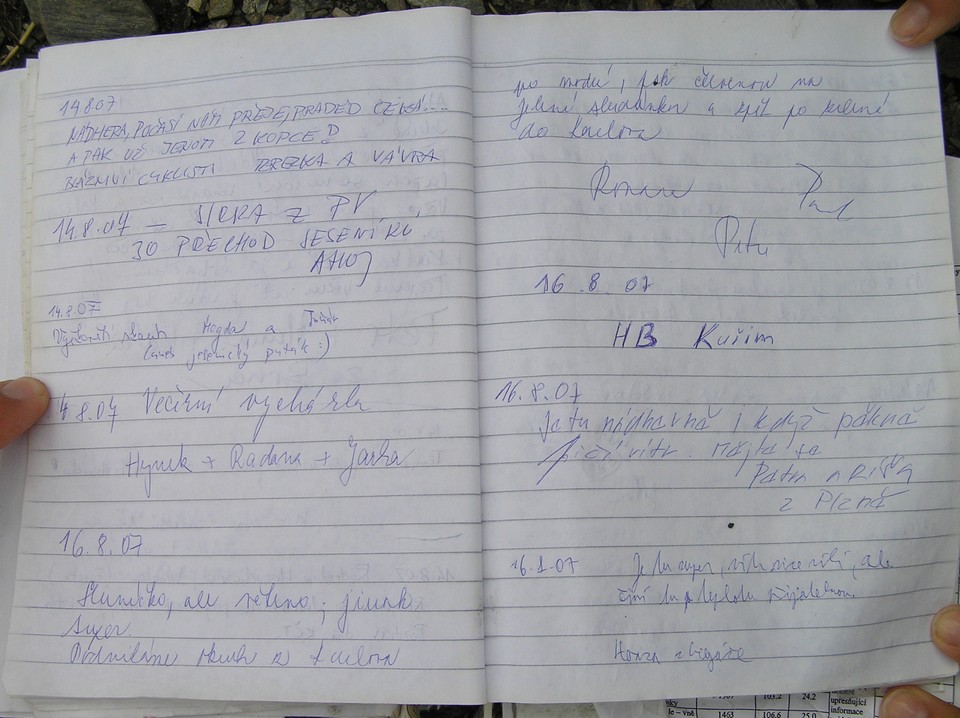 14.8.07
NÁDHERA, POČASÍ NÁM PŘEJE, PRADĚD ČEKÁ....
A PAK UŽ JENOM Z KOPCE!
BLÁZNIVÍ CYKLISTI TEREZKA A VÁVRA
14.8.07 – Z PV
30 PŘECHOD JESENÍKŮ,
AHOJ
14.8.07
Magda a
(aneb jesenický puťák :)
14.8.07 Večerní vycházka
Hynek + Radana + Jarka
16.8.07
Sluníčko, ale větrno, jinak
super.
Podnikáme okruh z Karlova
po modré, pak červenou na
Jelení studánku a zpět po zelené
do Karlova
Roman
Petr
16.8.07
HB Kuřim
16.8.07
Je tu nádherně i když pěkně
fičí vítr. Mějte se
z Plzně
16.8.07 Je tu super, vítr sice silí, ale
činí tu teplotu přijatelnou.
Honza z